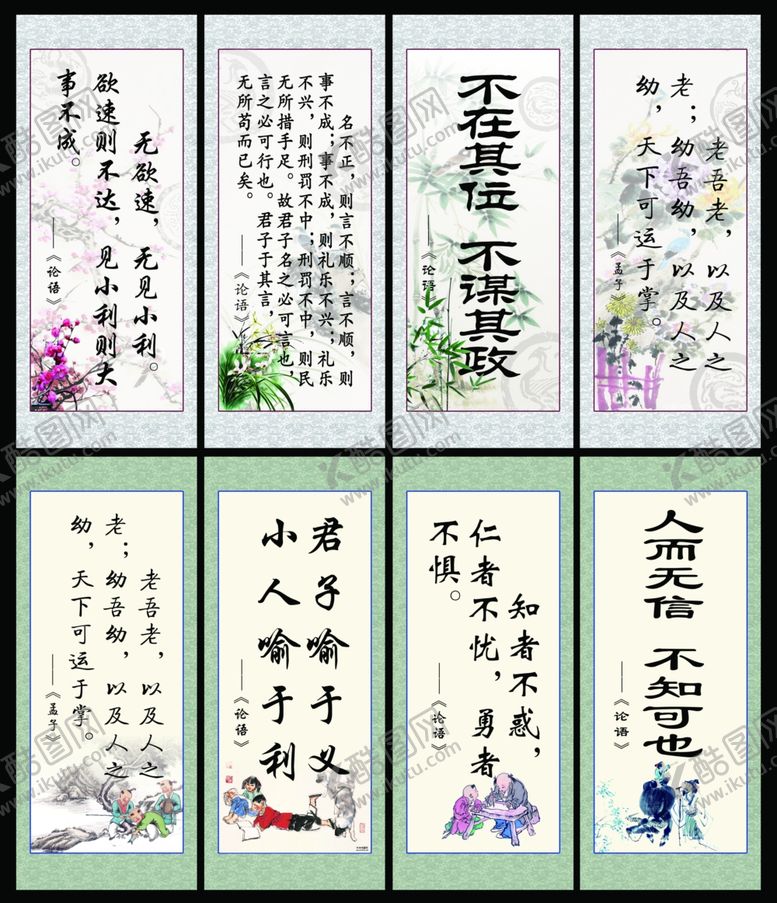 无欲速，无见小利。
欲速则不达，见小利则大
事不成。
——《论语》
名不正，则言不顺；言不顺，则
事不成；事不成，则礼乐不兴，礼乐
不兴，则刑罚不中；刑罚不中，则民
无所措手足。故君子名之必可言也，
言之必可行也。君子于其言，
无所苟而已矣。
——《论语》
不在其位 不谋其政
——《论语》
老吾老，以及人之
老；幼吾幼，以及人之
幼，天下可运于掌。
——《孟子》
老吾老，以及人之
老；幼吾幼，以及人之
幼，天下可运于掌。
——《孟子》
君子喻于义
小人喻于利
——《论语》
知者不惑，
仁者不忧，勇者
不惧。
——《论语》
人而无信 不知可也
——《论语》
酷图网
www.ikutu.com